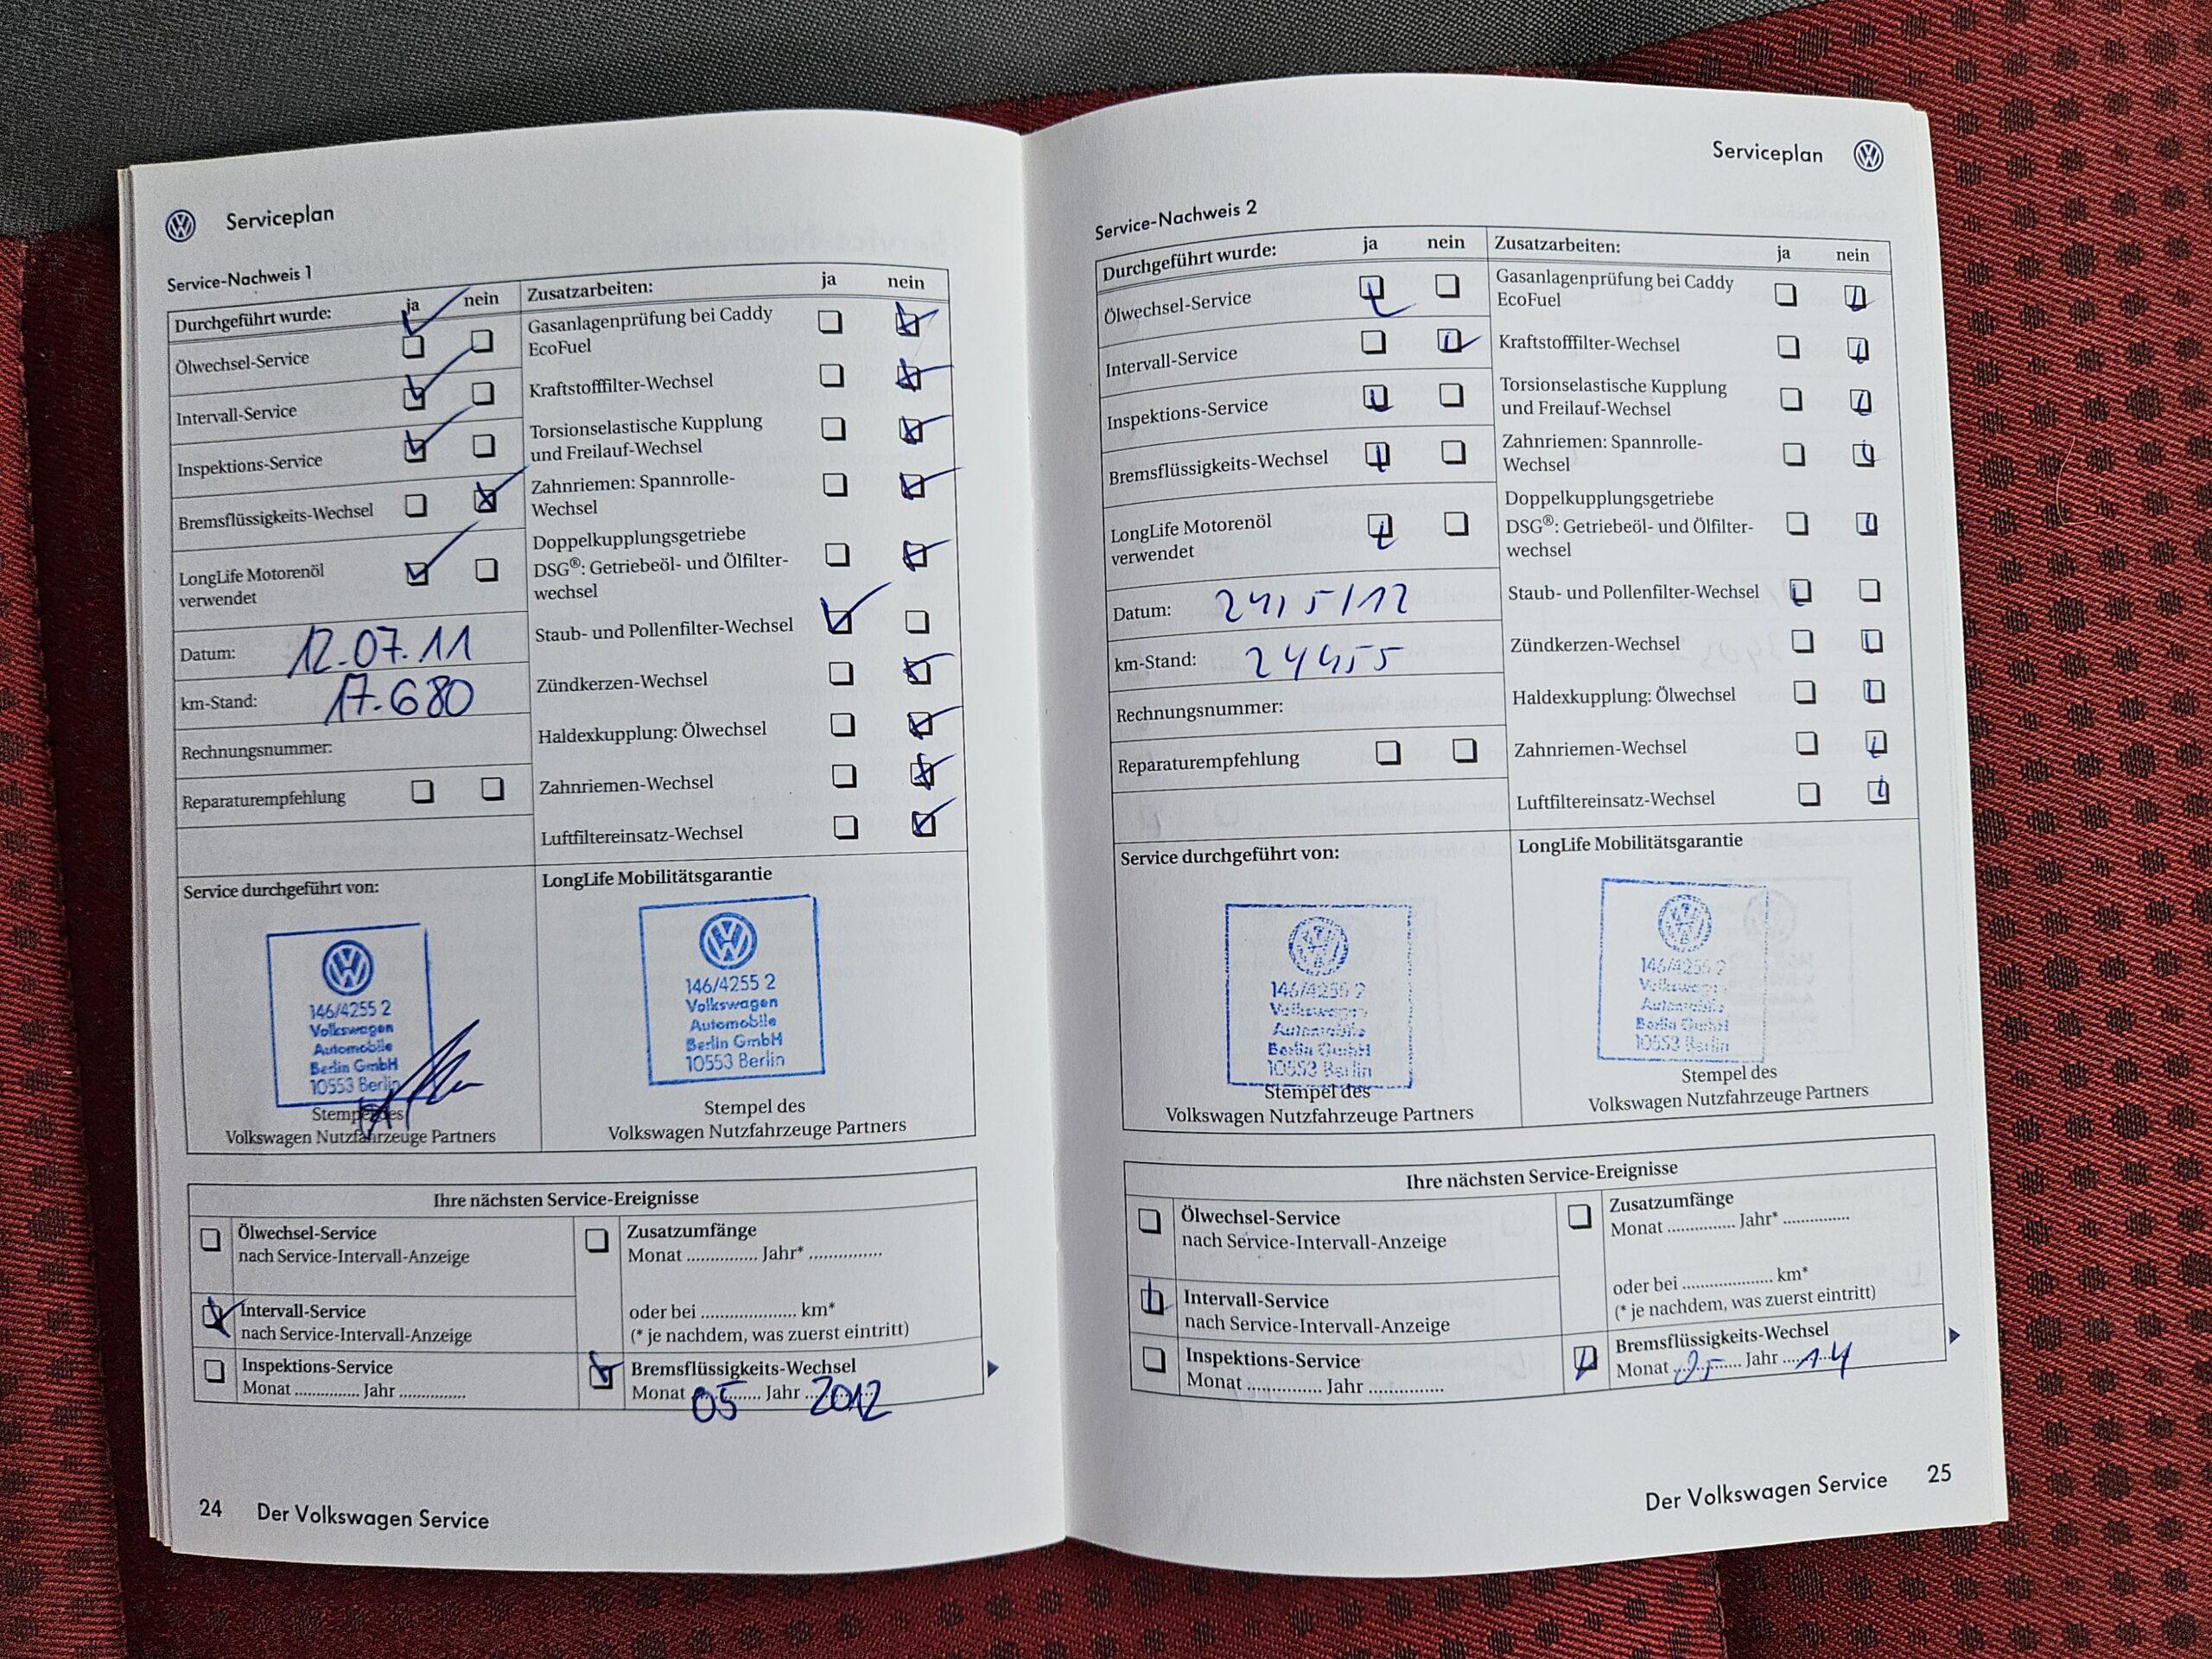 Serviceplan
Service-Nachweis 1
Durchgeführt wurde: ja nein
Ölwechsel-Service
Intervall-Service
Inspektions-Service
Bremsflüssigkeits-Wechsel
LongLife Motorenöl
verwendet
Datum: 12.07.11
km-Stand: 17.680
Rechnungsnummer:
Reparaturempfehlung
Zusatzarbeiten: ja nein
Gasanlagenprüfung bei Caddy
EcoFuel
Kraftstofffilter-Wechsel
Torsionselastische Kupplung
und Freilauf-Wechsel
Zahnriemen: Spannrolle-
Wechsel
Doppelkupplungsgetriebe
DSG®: Getriebeöl- und Ölfilter-
wechsel
Staub- und Pollenfilter-Wechsel
Zündkerzen-Wechsel
Haldexkupplung: Ölwechsel
Zahnriemen-Wechsel
Luftfiltereinsatz-Wechsel
Service durchgeführt von:
146/4255 2
Volkswagen
Automobile
Berlin GmbH
10553 Berlin
Stempel des
Volkswagen Nutzfahrzeuge Partners
LongLife Mobilitätsgarantie
146/4255 2
Volkswagen
Automobile
Berlin GmbH
10553 Berlin
Stempel des
Volkswagen Nutzfahrzeuge Partners
Ihre nächsten Service-Ereignisse
Ölwechsel-Service
nach Service-Intervall-Anzeige
Intervall-Service
nach Service-Intervall-Anzeige
Inspektions-Service
Monat ............... Jahr ...............
Zusatzumfänge
Monat ............... Jahr* ...............
oder bei .................... km*
(* je nachdem, was zuerst eintritt)
Bremsflüssigkeits-Wechsel
Monat 05 Jahr 2012
24 Der Volkswagen Service
Serviceplan
Service-Nachweis 2
Durchgeführt wurde: ja nein
Ölwechsel-Service
Intervall-Service
Inspektions-Service
Bremsflüssigkeits-Wechsel
LongLife Motorenöl
verwendet
Datum: 24/5/12
km-Stand: 24455
Rechnungsnummer:
Reparaturempfehlung
Zusatzarbeiten: ja nein
Gasanlagenprüfung bei Caddy
EcoFuel
Kraftstofffilter-Wechsel
Torsionselastische Kupplung
und Freilauf-Wechsel
Zahnriemen: Spannrolle-
Wechsel
Doppelkupplungsgetriebe
DSG®: Getriebeöl- und Ölfilter-
wechsel
Staub- und Pollenfilter-Wechsel
Zündkerzen-Wechsel
Haldexkupplung: Ölwechsel
Zahnriemen-Wechsel
Luftfiltereinsatz-Wechsel
Service durchgeführt von:
146/4255 2
Volkswagen
Automobile
Berlin GmbH
10553 Berlin
Stempel des
Volkswagen Nutzfahrzeuge Partners
LongLife Mobilitätsgarantie
146/4255 2
Volkswagen
Automobile
Berlin GmbH
10553 Berlin
Stempel des
Volkswagen Nutzfahrzeuge Partners
Ihre nächsten Service-Ereignisse
Ölwechsel-Service
nach Service-Intervall-Anzeige
Intervall-Service
nach Service-Intervall-Anzeige
Inspektions-Service
Monat ............... Jahr ...............
Zusatzumfänge
Monat ............... Jahr* ...............
oder bei .................... km*
(* je nachdem, was zuerst eintritt)
Bremsflüssigkeits-Wechsel
Monat 05 Jahr 14
Der Volkswagen Service 25